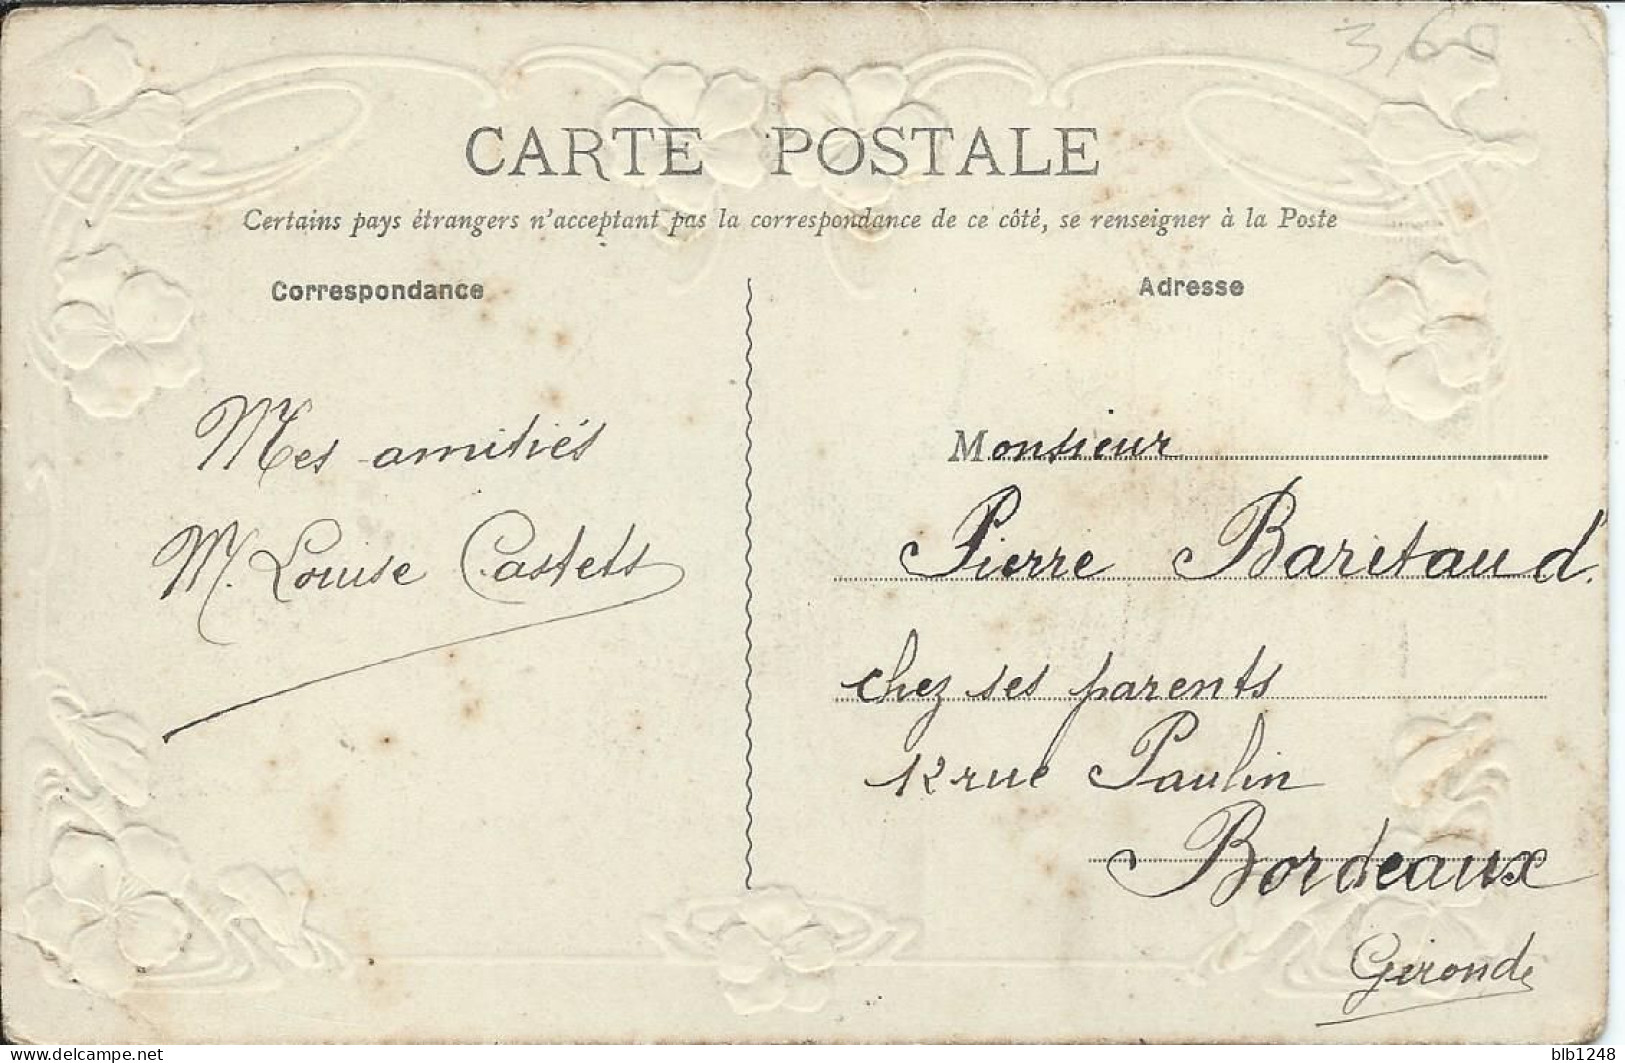 3,60
CARTE POSTALE
Certains pays étrangers n'acceptant pas la correspondance de ce côté, se renseigner à la Poste
Correspondance
Mes amitiés
M. Louise Castets
Adresse
Monsieur
Pierre Baritaud.
chez ses parents
12 rue Paulin
Bordeaux
Gironde
www.delcampe.net
blb1248